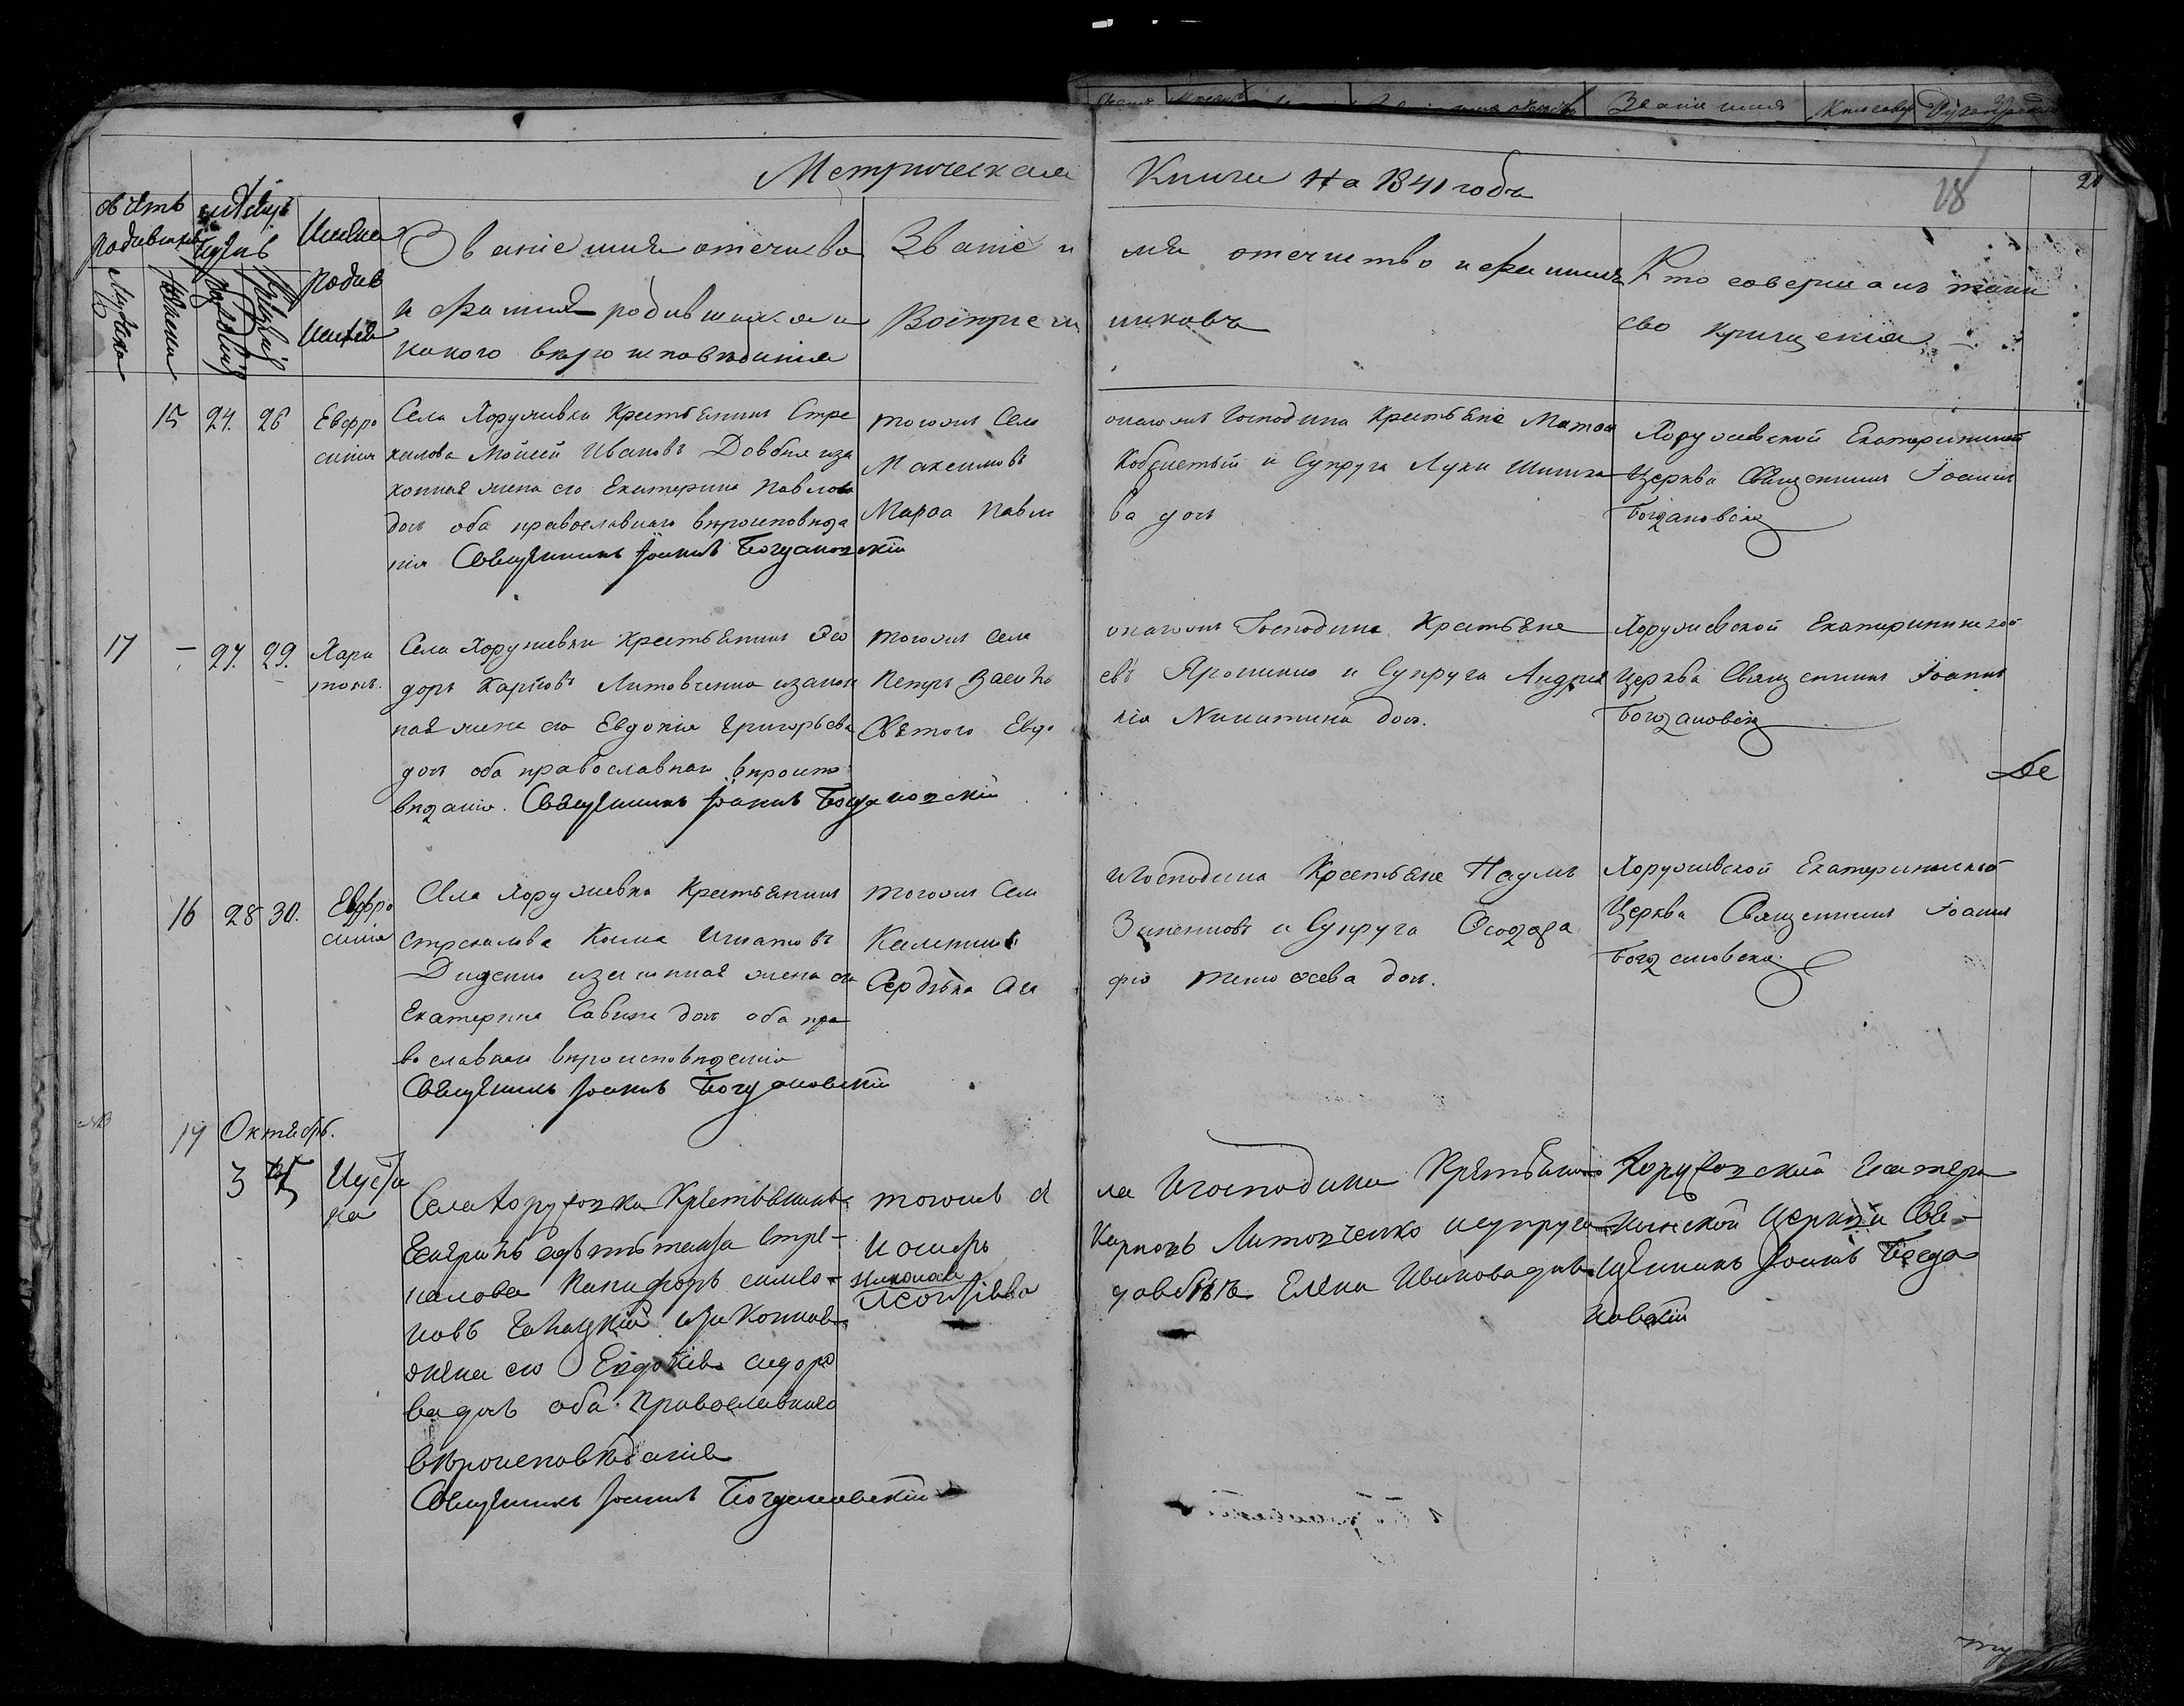 Метрическая Книга На 1841 годъ
18
20
счетъ родившихся
Мужеска
Женска
Мѣсяцъ и день
рожденія
крещенія
Имена родившихся
Званіе имя отечество
и фамилія родившихся и
какого вѣроисповѣданія
Званіе и мя отечество и фамилія
Воспріем никовъ
Кто совершалъ таин
ство крещенія
15 24. 26 Евфро
синия
Села Хоружевки Крестьянинъ Стре
калова Мойсей Ивановъ Довбня иза
конная жена его Екатерина Павлова
дочь оба православнаго вѣроисповѣда
нія Священникъ Іоаннъ Богдановскій
тогожъ Села
Максимовъ
Марѳа Павло
онагожъ Господина Крестьяне
Кобзистый и Супруга Луки
ва дочь
Хоружевской Екатерининской
Церкви Священникъ Іоаннъ
Богдановскій
17 – 27. 29. Хари
тонъ.
Села Хоружевки Крестьянинъ Ѳео
доръ Карповъ Литовченко изакон
ная жена его Евдокія Григорьева
дочь оба православнаго вѣроиспо
вѣданія. Священникъ Іоаннъ Богдановскій
тогожъ села
Петръ Василь
Святого Евдо
онагожъ Господина Крестьяне
евъ Ярошенко и Супруга Андрея
кія Никитина дочь.
Хоружевской Екатерининской
Церкви Священникъ Іоаннъ
Богдановскій
16 28 30. Евфро
синія
Села Хоружевки Крестьянинъ
Стрекалова Косма Игнатовъ
Диденко изаконная жена его
Екатерина Савина дочь оба пра
вославнаго вѣроисповѣданія
Священникъ Іоаннъ Богдановскій
тогожъ Села
Сердюка
игосподина Крестьяне Наумъ
и Супруга
Тимоѳеева дочь.
Хоружевской Екатерининской
Церкви Священникъ Іоаннъ
Богдановскій
17 Октябрь.
3 5 Иусти
на
Села Хоружовки Крестьянинъ
Стре-
калова Никифоръ Симео-
новъ изаконная
жена его Евдокія Сидоро
ва дочь оба Православнаго
вѣроисповѣданія
Священникъ Іоаннъ Богдановскій
тогожъ се
Іосифъ
ла Игосподина Крестьянинъ
Карповъ Литовченко исупруга
Елена Иванова дочь
Хоружовской Екатери
нинской Церкви Свя-
щенникъ Іоаннъ Богда
новскій